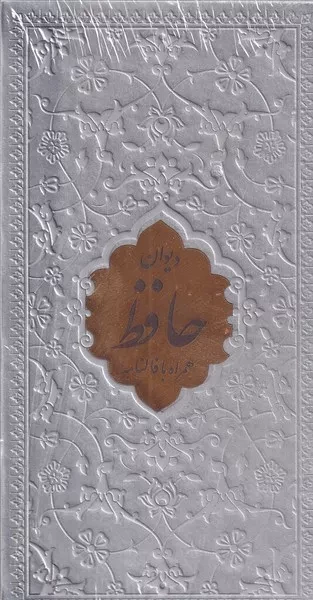 دیوان
حافظ
همراه با فالنامه